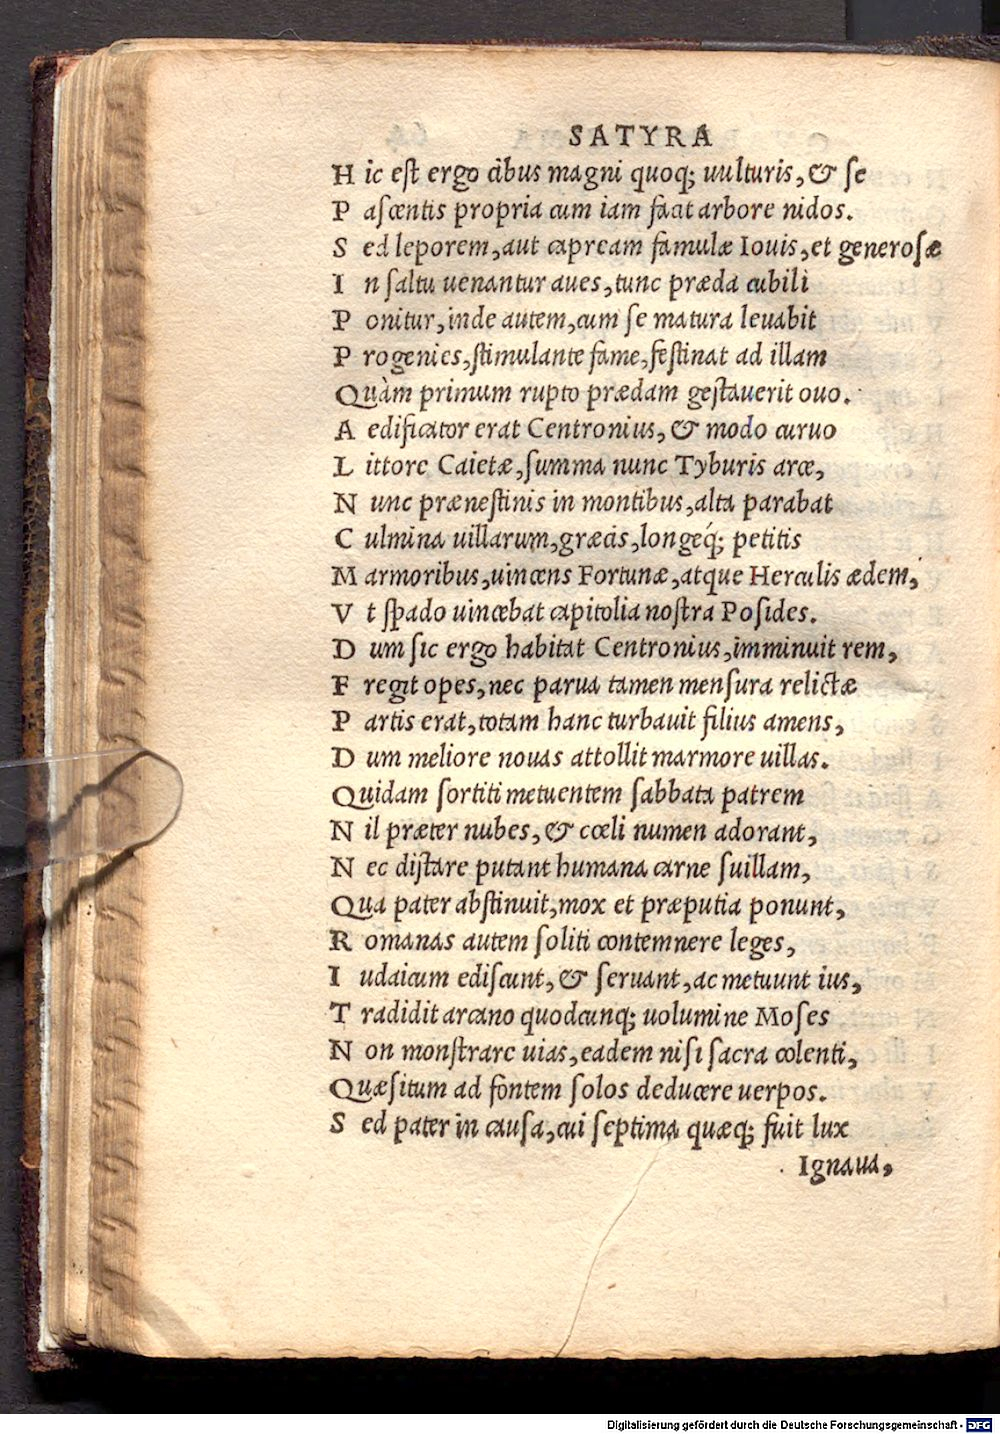 SATYRA
Hic est ergo cibus magni quoq; uulturis, & se
Pascentis propria cum iam facit arbore nidos.
Sed leporem, aut capream famulæ Iouis, et generosæ
In saltu uenantur aues, tunc præda cubili
Ponitur, inde autem, cum se matura leuabit
Progenies, stimulante fame, festinat ad illam
Quàm primum rupto prædam gestauerit ouo.
Aedificator erat Centronius, & modo curuo
Littore Caietæ, summa nunc Tyburis arce,
Nunc prænestinis in montibus, alta parabat
Culmina uillarum, græcis, longeq́; petitis
Marmoribus, uincens Fortunæ, atque Herculis ædem,
Vt spado uincebat capitolia nostra Posides.
Dum sic ergo habitat Centronius, imminuit rem,
Fregit opes, nec parua tamen mensura relictæ
Partis erat, totam hanc turbauit filius amens,
Dum meliore nouas attollit marmore uillas.
Quidam sortiti metuentem sabbata patrem
Nil præter nubes, & cœli numen adorant,
Nec distare putant humana carne suillam,
Qua pater abstinuit, mox et præputia ponunt,
Romanas autem soliti contemnere leges,
Iudaicum ediscunt, & seruant, ac metuunt ius,
Tradidit arcano quodcunq; uolumine Moses
Non monstrare uias, eadem nisi sacra colenti,
Quæsitum ad fontem solos deducere uerpos.
Sed pater in causa, cui septima quæq; fuit lux
Ignaua,
Digitalisierung gefördert durch die Deutsche Forschungsgemeinschaft - DFG